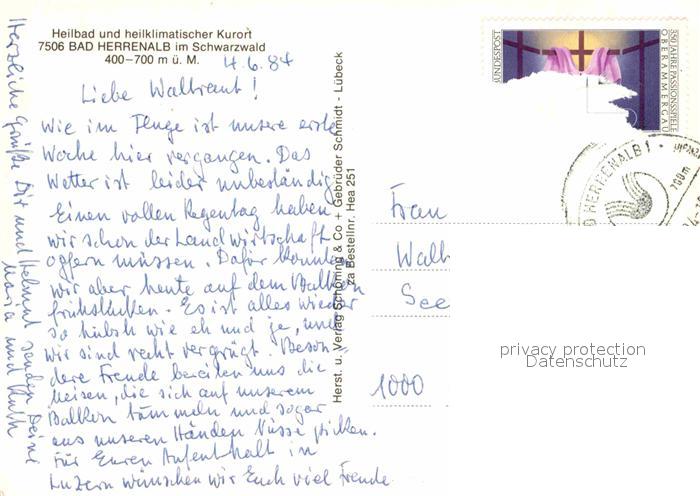 Heilbad und heilklimatischer Kurort
7506 BAD HERRENALB im Schwarzwald
400–700 m ü. M.
4.6.84
Liebe Waltraut!
Wie im Fluge ist unsere erste
Woche hier vergangen. Das
Wetter ist leider unbeständig.
Einen vollen Regentag haben
wir schon der Landwirtschaft
opfern müssen. Dafür konnten
wir aber heute auf dem Balkon
frühstücken. Es ist alles wieder
so hübsch wie eh und je, und
wir sind recht vergnügt. Beson-
dere Freude bereiten uns die
Meisen, die sich auf unserem
Balkon tummeln und sogar
aus unseren Händen Nüsse picken.
Für Euren Aufenthalt in
Luzern wünschen wir Euch viel Freude.
Herzliche Grüße Dir und Helmut senden Deine
Maria und Ruth
Herst. u. Verlag Schöning & Co + Gebrüder Schmidt - Lübeck
za Bestellnr. Hea 251
BUNDESPOST
350 JAHRE PASSIONSSPIELE
OBERAMMERGAU
D HERRENALB 1
700m
Frau
Walt
See
1000
privacy protection
Datenschutz